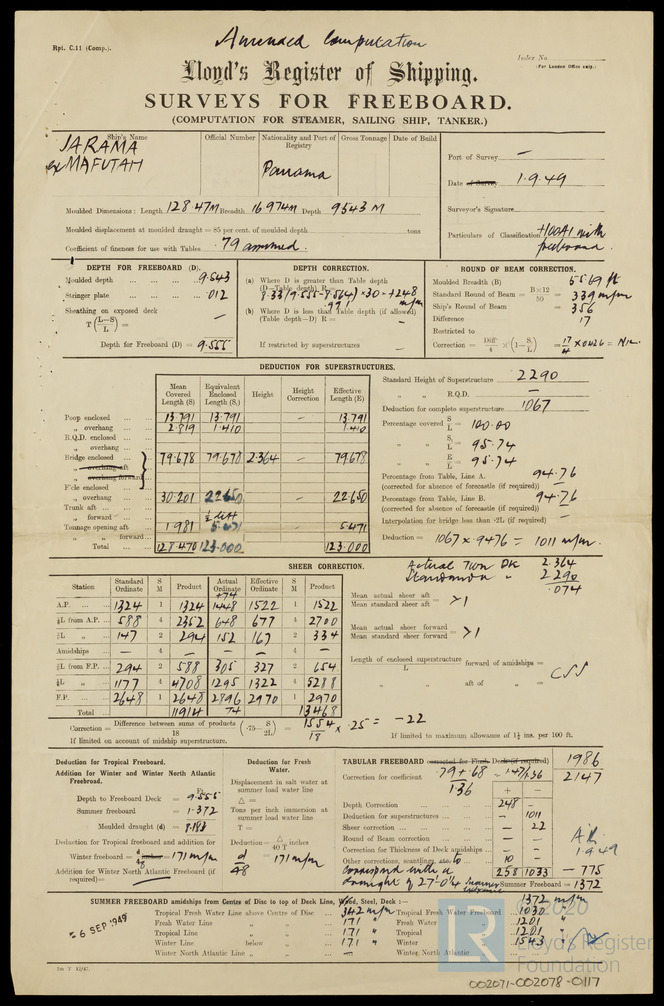 Rpt. C.11 (Comp.).
Amended Computation
Index No.
(For London Office only.)
Lloyd's Register of Shipping.
SURVEYS FOR FREEBOARD.
(COMPUTATION FOR STEAMER, SAILING SHIP, TANKER.)
Ship's Name
Official Number
Nationality and Port of Registry
Gross Tonnage
Date of Build
JARAMA
ex MAFUTAH
Panama
Port of Survey —
Date of Survey 1.9.49
Surveyor's Signature
Particulars of Classification +100A1 with freeboard.
Moulded Dimensions: Length 128.47M Breadth 16974M Depth 9543 M
Moulded displacement at moulded draught = 85 per cent. of moulded depth tons
Coefficient of fineness for use with Tables .79 assumed.
DEPTH FOR FREEBOARD (D).
Moulded depth 9.543
Stringer plate .012
Sheathing on exposed deck
T (L—S / L) = —
Depth for Freeboard (D) = 9.555
DEPTH CORRECTION.
(a) Where D is greater than Table depth
(D—Table depth) R =
8.33(9.555-8.564)×30 = +248 m/m
.991
(b) Where D is less than Table depth (if allowed)
(Table depth—D) R = —
If restricted by superstructures —
ROUND OF BEAM CORRECTION.
Moulded Breadth (B) 55.69 ft
Standard Round of Beam = B×12 / 50 = 339 m/m
Ship's Round of Beam = 356
Difference 17
Restricted to
Correction = Diffce / 4 × (1—S₁ / L) = 17/4 × .0426 = Nil.
DEDUCTION FOR SUPERSTRUCTURES.
Mean Covered Length (S)
Equivalent Enclosed Length (S₁)
Height
Height Correction
Effective Length (E)
Poop enclosed 13.791 13.791 — 13.791
„ overhang 2.819 1.410 1.410
R.Q.D. enclosed
„ overhang
Bridge enclosed 79.678 79.678 2.364 — 79.678
„ overhang aft
„ overhang forward
F'cle enclosed
„ overhang 30.201 22.650 — 22.650
Trunk aft
„ forward ½ diff
Tonnage opening aft 1.981 5.471 — 5.471
„ „ forward
Total 128.470 123.000 123.000
Standard Height of Superstructure 2290
„ „ R.Q.D. —
Deduction for complete superstructure 1067
Percentage covered S / L = 100.00
„ S₁ / L = 95.74
„ E / L = 95.74
Percentage from Table, Line A. 94.76
(corrected for absence of forecastle (if required)) —
Percentage from Table, Line B. 94.76
(corrected for absence of forecastle (if required)) —
Interpolation for bridge less than .2L (if required) —
Deduction = 1067 × .9476 = 1011 m/m.
SHEER CORRECTION.
Actual Twn Dk 2.364
Standard „ 2.290
.074
Station
Standard Ordinate
S M
Product
Actual Ordinate
Effective Ordinate
S M
Product
+74
A.P. 1324 1 1324 1448 1522 1 1522
⅙L from A.P. 588 4 2352 648 677 4 2700
⅓L „ 147 2 294 152 167 2 334
Amidships — 4 — — 4 —
⅓L from F.P. 294 2 588 305 327 2 654
⅙L „ 1177 4 4708 1295 1322 4 5288
F.P. 2648 1 2648 2896 2970 1 2970
Total 11914 74 13468
Mean actual sheer aft
Mean standard sheer aft = >1
Mean actual sheer forward
Mean standard sheer forward = >1
Length of enclosed superstructure / L forward of amidships =
„ „ aft of „ =
CSS
Correction = Difference between sums of products / 18 (.75—S / 2L) = 1554 / 18 × .25 = —22
If limited on account of midship superstructure.
If limited to maximum allowance of 1½ ins. per 100 ft.
Deduction for Tropical Freeboard.
Addition for Winter and Winter North Atlantic Freeboard.
Ft.
Depth to Freeboard Deck = 9.555
Summer freeboard = 1.372
Moulded draught (d) = 8.183
Deduction for Tropical freeboard and addition for
Winter freeboard = d/48 = 171 m/m
Addition for Winter North Atlantic Freeboard (if required)= —
Deduction for Fresh Water.
Displacement in salt water at summer load water line
Δ =
Tons per inch immersion at summer load water line
T =
Deduction = Δ / 40 T inches
d/48 = 171 m/m
TABULAR FREEBOARD corrected for Flush Deck (if required) 1986
Correction for coefficient .79+.68 / 1.36 = 1.47/1.36 2147
+ —
Depth Correction 248 —
Deduction for superstructures — 1011
Sheer correction — 22
Round of Beam correction — —
Correction for Thickness of Deck amidships — —
Other corrections, scantlings, etc. to 10 —
correspond with a draught of 27'-0¼ Summer 258 1033 — 775
Summer Freeboard = 1372
1.9.49
SUMMER FREEBOARD amidships from Centre of Disc to top of Deck Line, Wood, Steel, Deck :— 1372 m/m
Tropical Fresh Water Line above Centre of Disc 342 m/m
Tropical Fresh Water Freeboard 1030
Fresh Water Line „ „ 171
Fresh Water „ 1201
Tropical Line „ „ 171
Tropical „ 1201
Winter Line below „ 171
Winter „ 1543
Winter North Atlantic Line „ „ —
Winter North Atlantic „
26 SEP 1949
© 2020
LR
Lloyd's Register
Foundation
002071-002078-0117